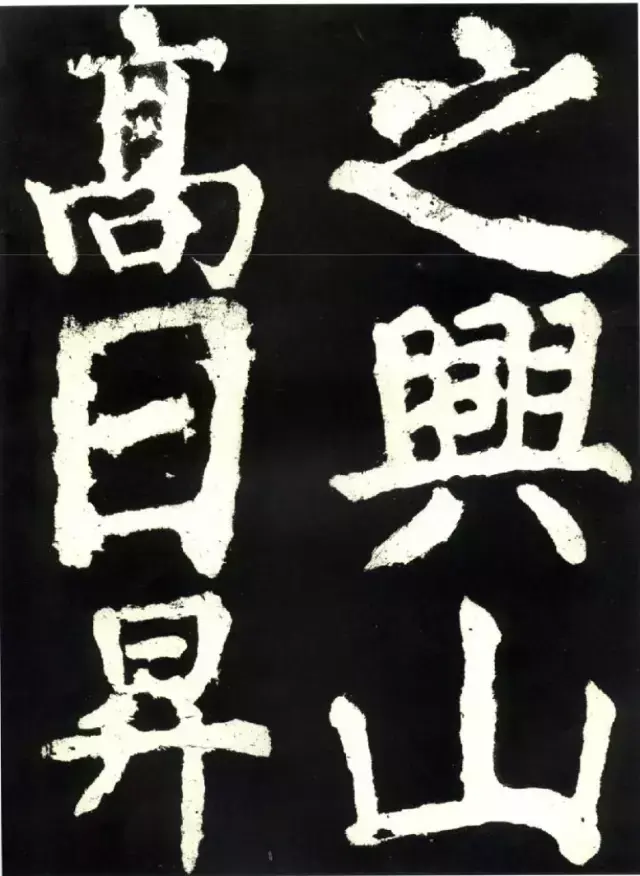 之興山
高日昇